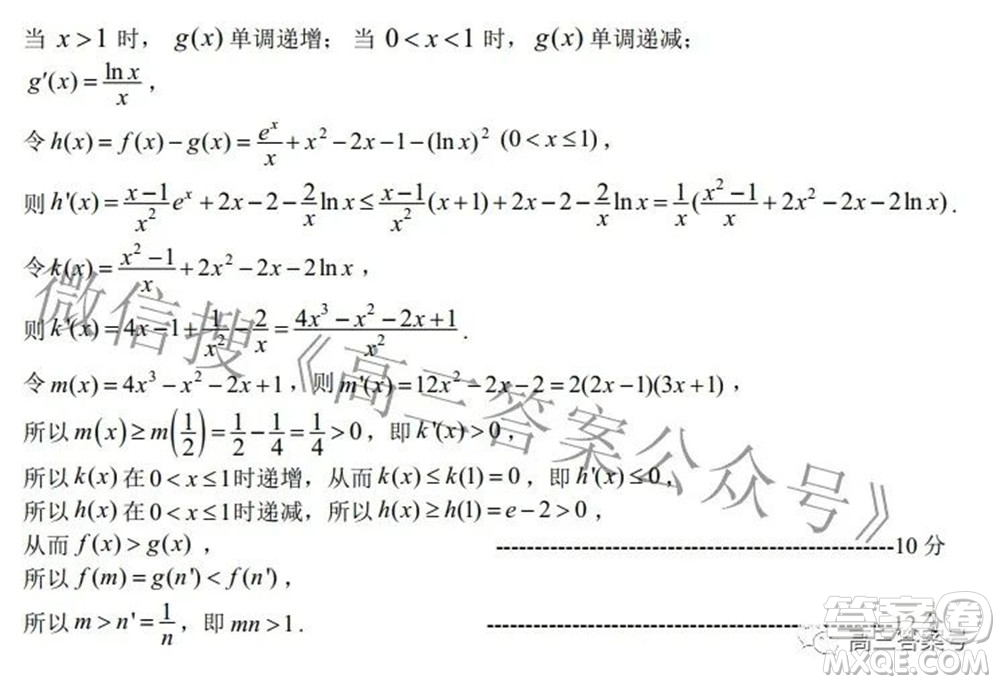 当 x>1 时， g(x) 单调递增； 当 0<x<1 时， g(x) 单调递减；
g'(x)=\frac{\ln x}{x}，
令 h(x)=f(x)-g(x)=\frac{e^x}{x}+x^2-2x-1-(\ln x)^2 (0<x≤1)，
则 h'(x)=\frac{x-1}{x^2}e^x+2x-2-\frac{2}{x}\ln x≤\frac{x-1}{x^2}(x+1)+2x-2-\frac{2}{x}\ln x=\frac{1}{x}(\frac{x^2-1}{x}+2x^2-2x-2\ln x).
令 k(x)=\frac{x^2-1}{x}+2x^2-2x-2\ln x，
则 k'(x)=4x-1+\frac{1}{x^2}-\frac{2}{x}=\frac{4x^3-x^2-2x+1}{x^2}.
令 m(x)=4x^3-x^2-2x+1，则 m'(x)=12x^2-2x-2=2(2x-1)(3x+1)，
所以 m(x)≥m(\frac{1}{2})=\frac{1}{2}-\frac{1}{4}=\frac{1}{4}>0，即 k'(x)>0，
所以 k(x) 在 0<x≤1 时递增，从而 k(x)≤k(1)=0，即 h'(x)≤0，
所以 h(x) 在 0<x≤1 时递减，所以 h(x)≥h(1)=e-2>0，
从而 f(x)>g(x)， ----------10 分
所以 f(m)=g(n')<f(n')，
所以 m>n'=\frac{1}{n}，即 mn>1. ----------12 分
微信搜《高三答案公众号》
高三答案号
答案圈
MXQE.COM